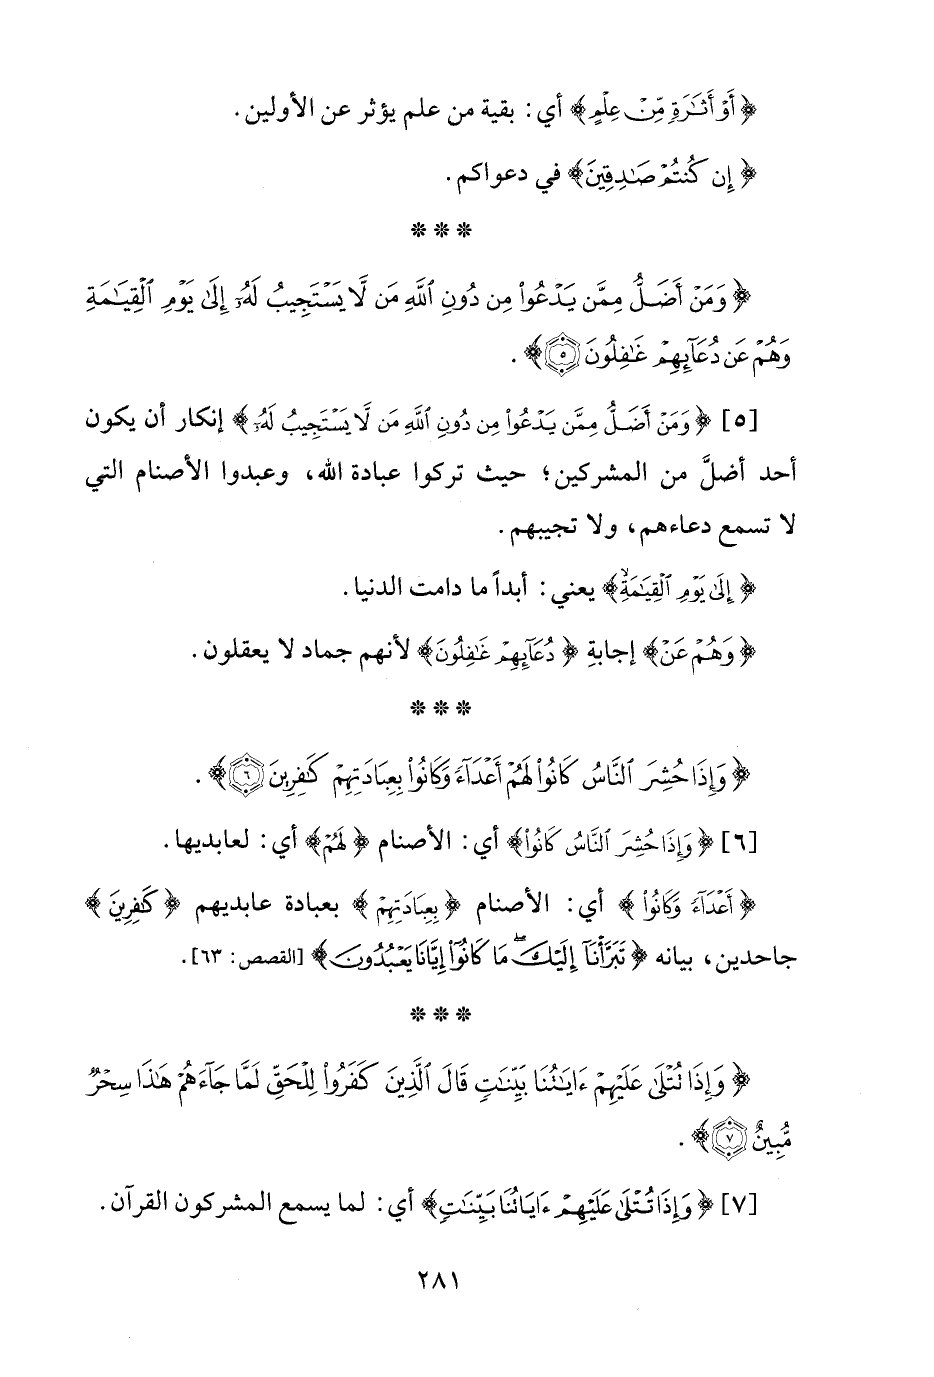 ﴿أَوْ أَثَٰرَةٍ مِّنْ عِلْمٍ﴾ أي: بقية من علم يؤثر عن الأولين.
﴿إِن كُنتُمْ صَٰدِقِينَ﴾ في دعواكم.
* * *
﴿وَمَنْ أَضَلُّ مِمَّن يَدْعُوا۟ مِن دُونِ ٱللَّهِ مَن لَّا يَسْتَجِيبُ لَهُۥٓ إِلَىٰ يَوْمِ ٱلْقِيَٰمَةِ
وَهُمْ عَن دُعَآئِهِمْ غَٰفِلُونَ ٥﴾.
[٥] ﴿وَمَنْ أَضَلُّ مِمَّن يَدْعُوا۟ مِن دُونِ ٱللَّهِ مَن لَّا يَسْتَجِيبُ لَهُۥٓ﴾ إنكار أن يكون
أحد أضلَّ من المشركين؛ حيث تركوا عبادة الله، وعبدوا الأصنام التي
لا تسمع دعاءهم، ولا تجيبهم.
﴿إِلَىٰ يَوْمِ ٱلْقِيَٰمَةِۙ﴾ يعني: أبداً ما دامت الدنيا.
﴿وَهُمْ عَنْ﴾ إجابةِ ﴿دُعَآئِهِمْ غَٰفِلُونَ﴾ لأنهم جماد لا يعقلون.
* * *
﴿وَإِذَا حُشِرَ ٱلنَّاسُ كَانُوا۟ لَهُمْ أَعْدَآءً وَكَانُوا۟ بِعِبَادَتِهِمْ كَٰفِرِينَ ٦﴾.
[٦] ﴿وَإِذَا حُشِرَ ٱلنَّاسُ كَانُوا۟﴾ أي: الأصنام ﴿لَهُمْ﴾ أي: لعابديها.
﴿أَعْدَآءً وَكَانُوا۟﴾ أي: الأصنام ﴿بِعِبَادَتِهِمْ﴾ بعبادة عابديهم ﴿كَٰفِرِينَ﴾
جاحدين، بيانه ﴿تَبَرَّأْنَآ إِلَيْكَ ۖ مَا كَانُوٓا۟ إِيَّانَا يَعْبُدُونَ﴾ [القصص: ٦٣].
* * *
﴿وَإِذَا تُتْلَىٰ عَلَيْهِمْ ءَايَٰتُنَا بَيِّنَٰتٍ قَالَ ٱلَّذِينَ كَفَرُوا۟ لِلْحَقِّ لَمَّا جَآءَهُمْ هَٰذَا سِحْرٌ
مُّبِينٌ ٧﴾.
[٧] ﴿وَإِذَا تُتْلَىٰ عَلَيْهِمْ ءَايَاتُنَا بَيِّنَٰتٍ﴾ أي: لما يسمع المشركون القرآن.
٢٨١